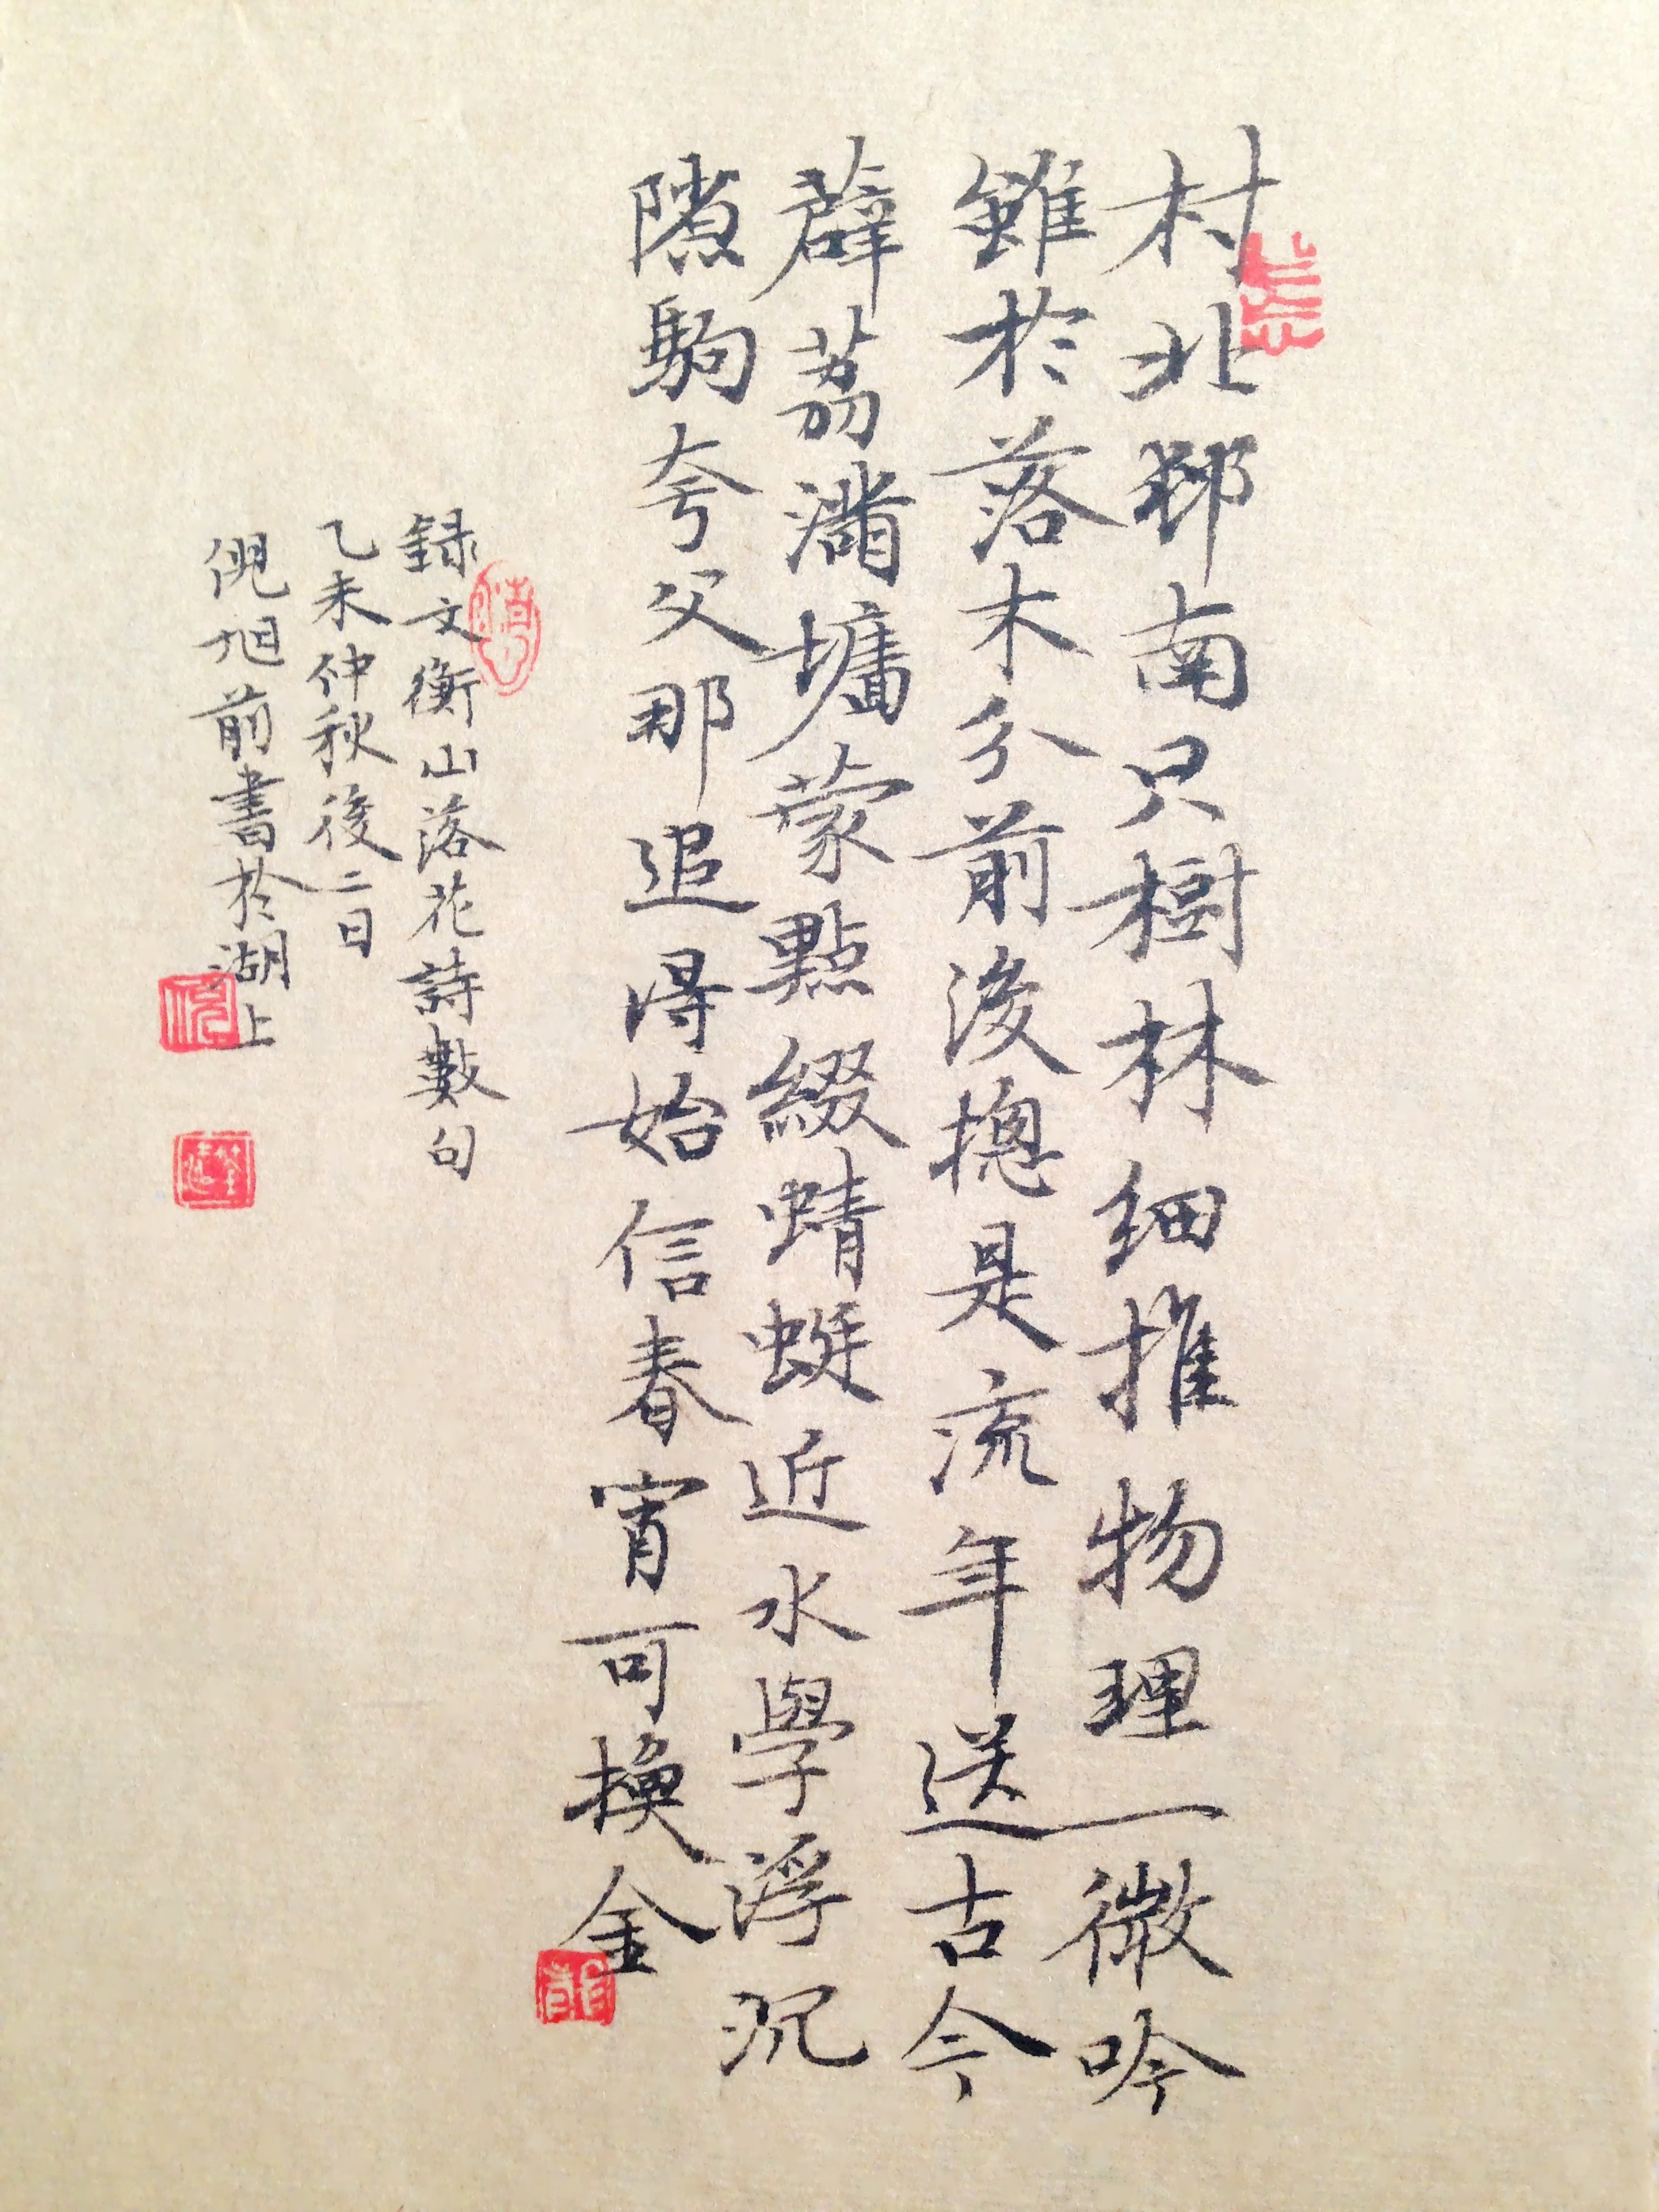 村北邨南只樹林細推物理一微吟
雖於落木分前後摠是流年送古今
薜荔灊墉蒙點綴蜻蜓近水學浮沉
隙駒夸父那追得始信春宵可換金
録文衡山落花詩數句
乙未仲秋後二日
倪旭前書於湖上